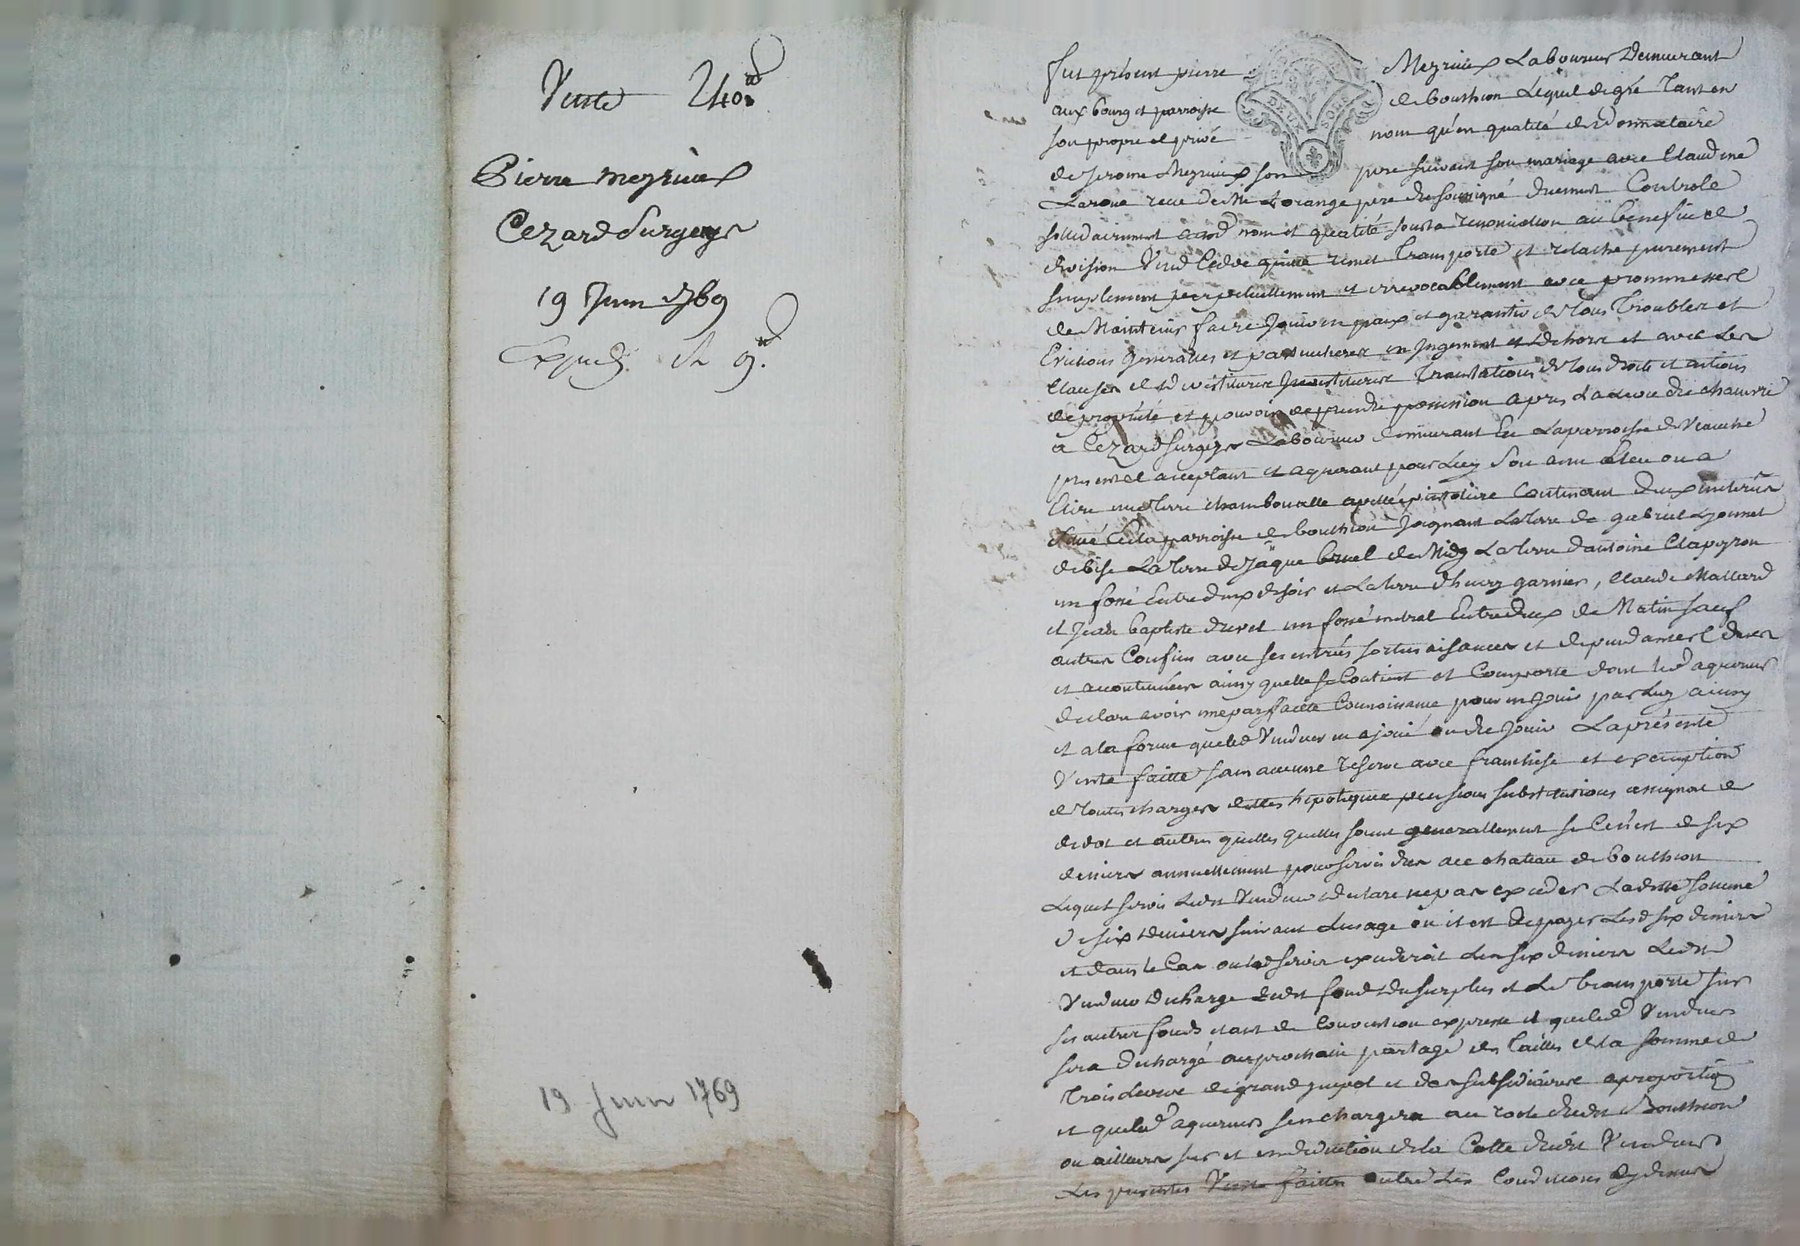 Vente 240#
Pierre meyrieux
Cezard Surgeys
19 Juin 1769
Expedi. ch 9#.
19 Juin 1769
DEUX SOLS
fut present pierre Meyrieux Laboureur Demeurant
aux bourg et parroisse de bouthion Lequel de gré Tant en
son propre et privé nom qu'en qualité de Donnataire
de Jerome Meyrieux son pere suivant son mariage avec Claudine
Laroue receu de Me Lorange pere du soussigné duement Controlé
sollidairement auxd nom et qualité sous la renonciation au benefice de
division Vend Cedde quitte remet Transporte et relache purement
simplement perpetuellement et irrevocablement avec prommesse
de Maintenir faire Jouir en paix et garantir de tous Troubles et
Evictions generalles et particulieres en Jugement et dehors et avec Les
Clauses de devestitures Investitures Translations de tous droits et actions
de propriété et pouvoir de prendre possession apres La levée du chanvre
a Cezard Surgeys Laboureur demeurant En La parroisse de Veauche
present acceptant et aquerant pour Luy Son amy Eleu ou a
Elire une Terre chambonalle apellée contenant deux meterés
situé En la parroisse de bouthion Joignant La terre de gabriel Lyonnet
de bise La terre de Jaque bruel de Midy La terre d'antoine Clapeyron
un fossé Entre deux de soir et La terre d'huiez garnier, Claude Mallard
et Jean baptiste duret un fossé mitral Entre deux de Matin sauf
autres Confins avec ses entrées sorties aisances et dependances dues
et accoutumées ainsy quelle se Contient et Comporte dont led aquereur
declare avoir une parfaite Connoissance pour en Jouir par Luy ainsy
et a la forme que led Vendeur en a joui ou du Jouir La présente
Vente faitte sans aucune reserve avec franchise et exemption
de toutes charges dettes hipoteques pensions substitutions assignat de
de dot et autres quelles quelles soient generallement si Ce n'est de six
deniers annuellement pour servis dus au chateau de bouthion
Lequel servis Ledit Vendeur declare ne pas exceder Laditte somme
de six deniers suivant Lusage ou il est de payer Lesd six deniers
et dans le Cas ou led servis excederoit Les six deniers Ledit
Vendeur decharge Ledit fond du surplus et Le transporte sur
ses autres fonds etant de Convention expresse et que led Vendeur
sera dechargé au prochain partage des tailles de la somme de
Trois Livres de grand impot et des subsidiaires a proportion
et que led aquereur sen chargera au role dudit Bouthion
ou ailleurs sur et en diduction de la Cotte dudit Vendeur
Les presentes Vente faittes outre Les Conditions Cydessus